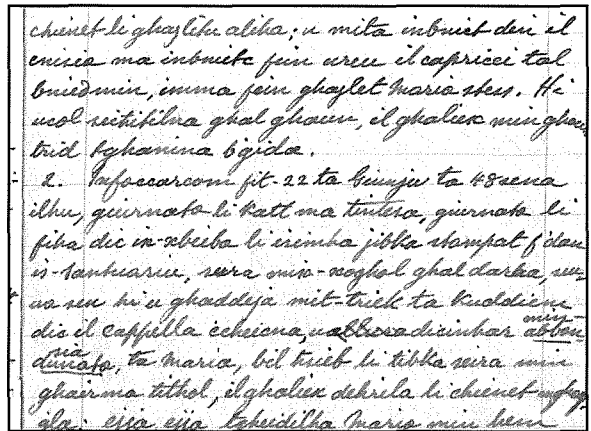 chienet li ghazlitu aliha; u mita inbniet den il
cnisea ma inbnietx fein ureu il capricci tal
bniedmin, imma fein ghazlet Maria stess. Hi
ucol seitifilna ghal ghaun, il ghaliex min
trid tghanina b'gida.
2. Infoccarcom fit-22 ta Giunju ta 48 sena
ilhu, giurnata li katt ma tintesa, giurnata li
fiha dic ix-xbeiba li isimha jibka stampat f'dan
is-santuariu, seira mix-xoghol ghal darha,
sen hi u ghaddeja mit-triek ta Kuddiem
dic il cappella ccheicna, dicinhar abban
dunata, ta Maria, bil hsieb li tibka seira min
ghair ma tithol, ilghaliex dehrila li chienet
ejja ejja tgheidilha Maria min hem